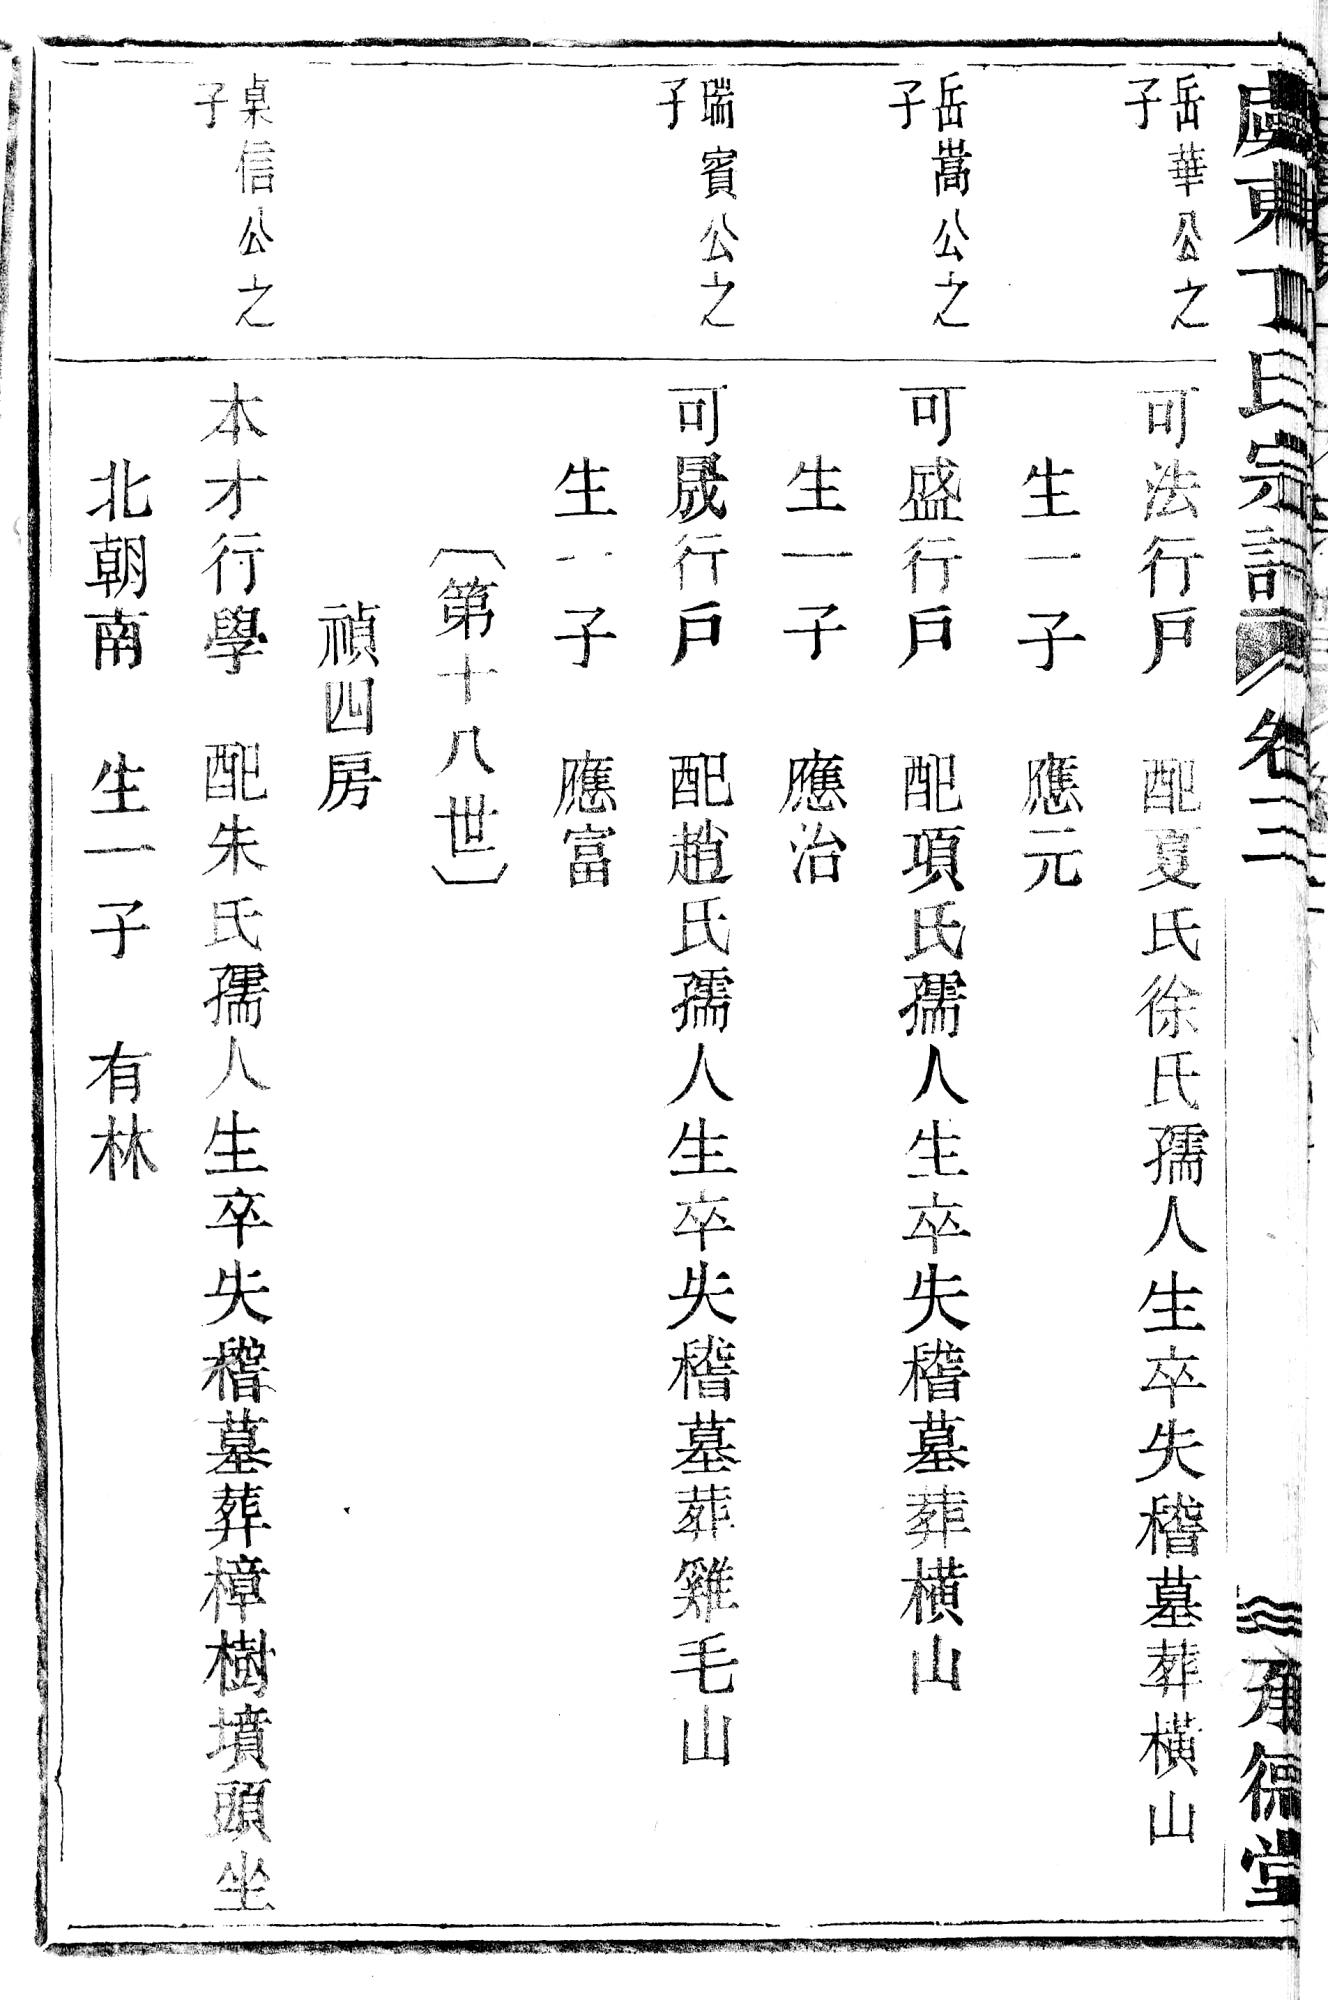 虞東丁氏宗譜 卷二 承德堂
岳華公之
子
可法行戶 配夏氏徐氏孺人生卒失稽墓葬橫山
生一子 應元
岳嵩公之
子
可盛行戶 配項氏孺人生卒失稽墓葬橫山
生一子 應治
瑞賓公之
子
可晟行戶 配趙氏孺人生卒失稽墓葬雞毛山
生一子 應富
〔第十八世〕
禎四房
桌信公之
子
本才行學 配朱氏孺人生卒失稽墓葬樟樹墳頭坐
北朝南 生一子 有林